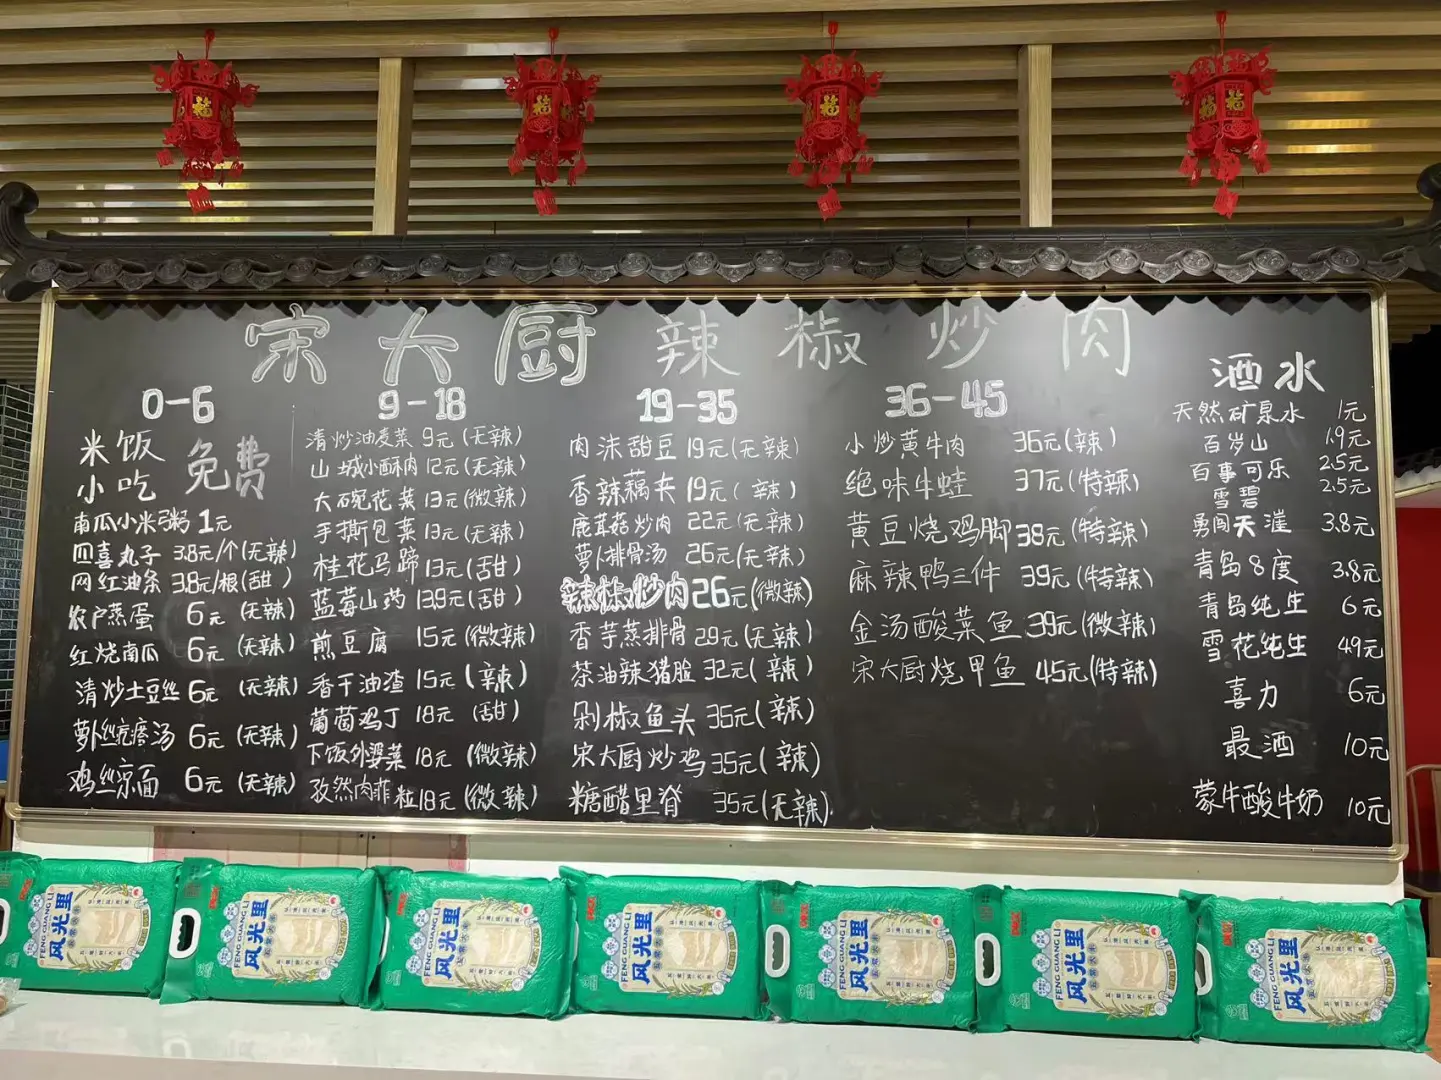 福
福
福
福 福
宋大厨辣椒炒肉
0-6
米饭
小吃
免费
南瓜小米粥 1元
四喜丸子 3.8元/个(无辣)
网红油条 3.8元/根(甜)
农户蒸蛋 6元 (无辣)
红烧南瓜 6元 (无辣)
清炒土豆丝 6元 (无辣)
萝卜丝疙瘩汤 6元 (无辣)
鸡丝凉面 6元 (无辣)
9-18
清炒油麦菜 9元 (无辣)
山城小酥肉 12元 (无辣)
大碗花菜 13元 (微辣)
手撕包菜 13元 (无辣)
桂花马蹄 13元 (甜)
蓝莓山药 13.9元 (甜)
煎豆腐 15元 (微辣)
香干油渣 15元 (辣)
葡萄鸡丁 18元 (甜)
下饭外婆菜 18元 (微辣)
孜然肉菲粒 18元 (微辣)
19-35
肉沫甜豆 19元 (无辣)
香辣藕夹 19元 (辣)
鹿茸菇炒肉 22元 (无辣)
萝卜排骨汤 26元 (无辣)
辣椒炒肉 26元 (微辣)
香芋蒸排骨 29元 (无辣)
茶油辣猪脸 32元 (辣)
剁椒鱼头 35元 (辣)
宋大厨炒鸡 35元 (辣)
糖醋里脊 35元 (无辣)
36-45
小炒黄牛肉 36元 (辣)
绝味牛蛙 37元 (特辣)
黄豆烧鸡脚 38元 (特辣)
麻辣鸭三件 39元 (特辣)
金汤酸菜鱼 39元 (微辣)
宋大厨烧甲鱼 45元 (特辣)
酒水
天然矿泉水 1元
百岁山 1.9元
百事可乐 2.5元
雪碧 2.5元
勇闯天涯 3.8元
青岛8度 3.8元
青岛纯生 6元
雪花纯生 49元
喜力 6元
最酒 10元
蒙牛酸牛奶 10元
风光里
FENG GUANG LI
风光里
FENG GUANG LI
风光里
FENG GUANG LI
风光里
FENG GUANG LI
风光里
FENG GUANG LI
风光里
FENG GUANG LI
风光里
FENG GUANG LI